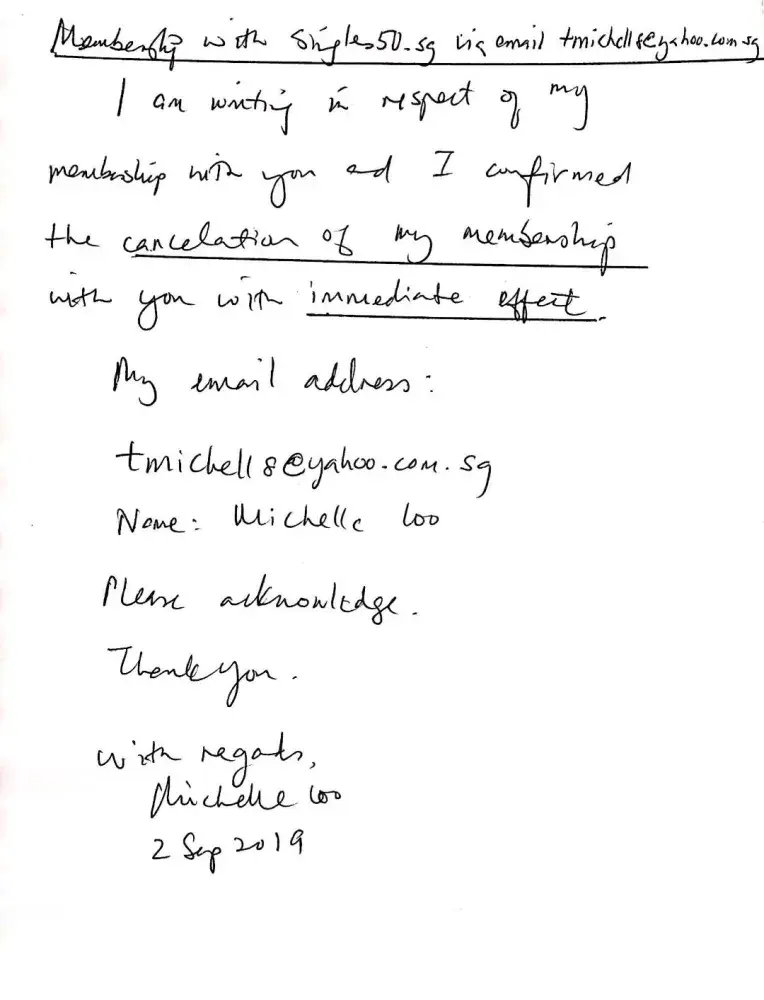 Membership with Singles50.sg via email tmichell8@yahoo.com.sg
I am writing in respect of my
membership with you and I confirmed
the cancelation of my membership
with you with immediate effect.
My email address:
tmichell8@yahoo.com.sg
Name: Michelle Loo
Please acknowledge.
Thank you.
With regards,
Michelle Loo
2 Sep 2019